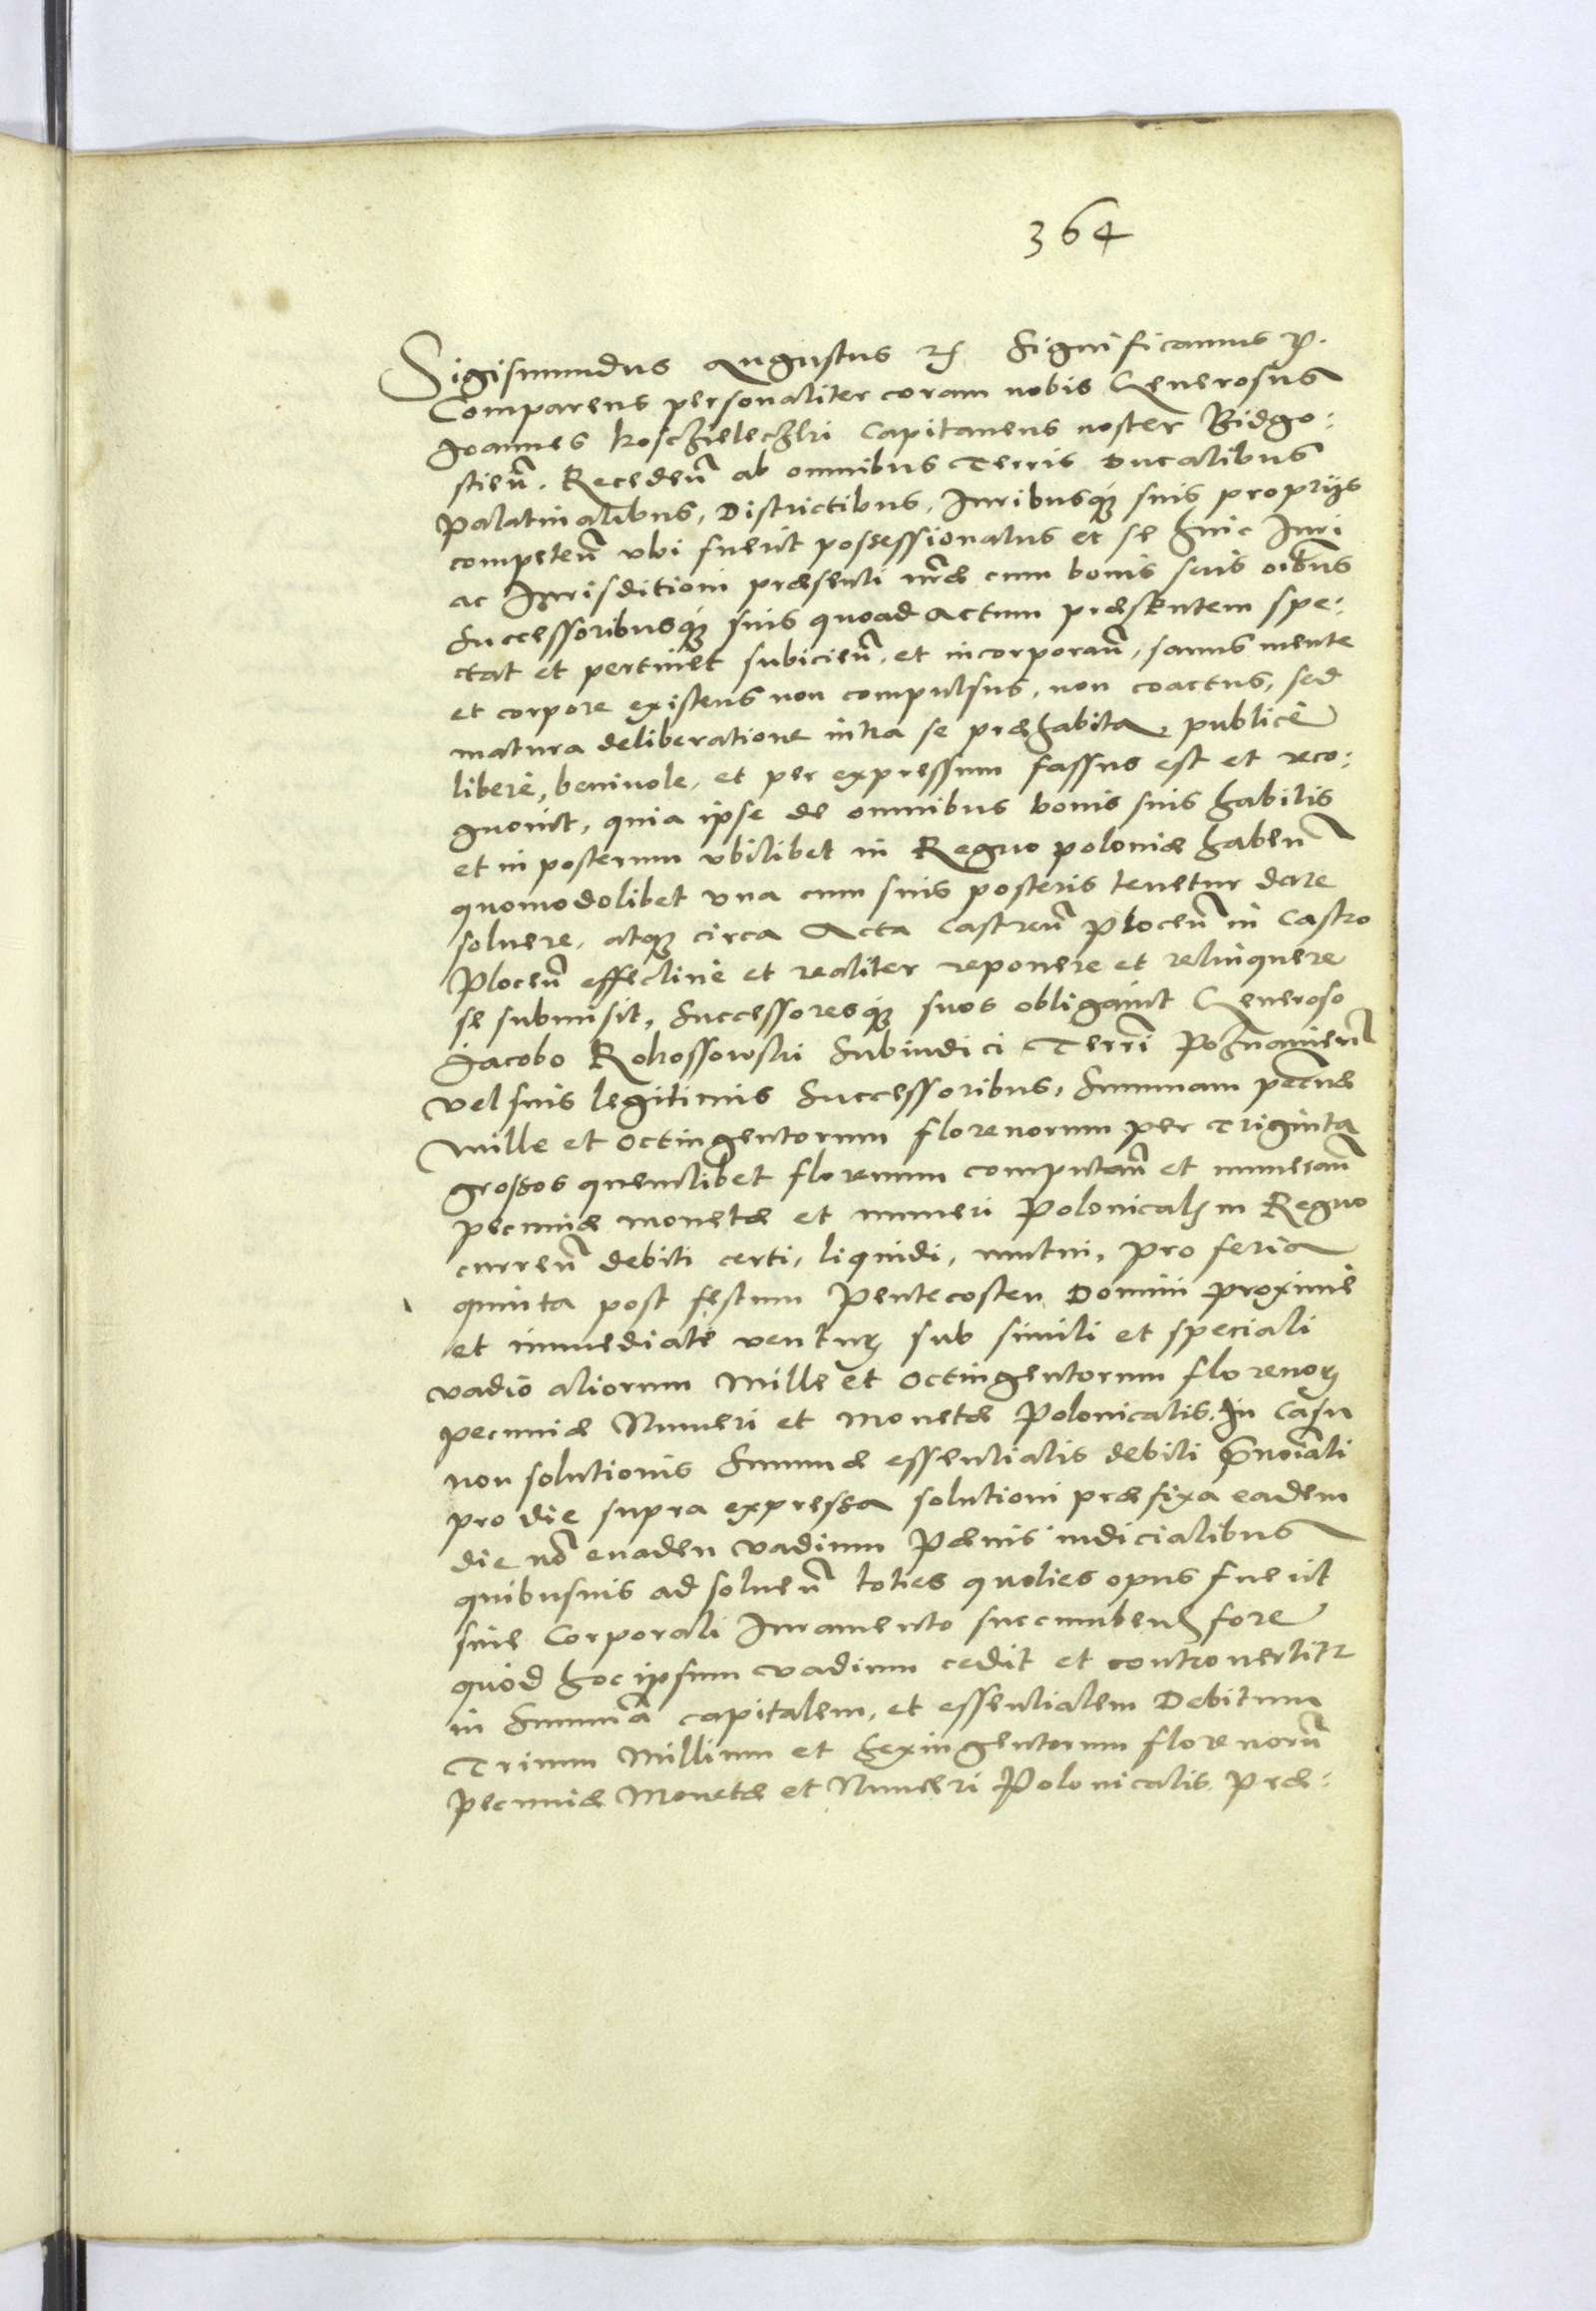 364
Sigismundus Augustus etc Significamus p.
Comparens personaliter coram nobis Generosus
Joannes Koschzielechzki Capitaneus noster Bidgo:
stien̄. Recedeñ ab omnibus Terris Ducalibus
Palatinalibus, Districtibus, Iuribusq́ue suis proprijs
competeñ vbi fuerit possessionatus et se huic Iuri
ac Jurisditioni præsenti nr̄æ cum bonis suis oībus
Successoribusq́ue suis quoad Actum præsentem spe:
ctat et pertinet subicieñ. et incorporañ, sanus mente
et corpore existens non compulsus, non coactus, sed
matura deliberatione intra se præhabita, publicè
liberè, beniuole, et per expressum fassus est et reco:
gnouit, quia ipse de omnibus bonis suis habitis
et in posterum vbilibet in Regno poloniæ habeñ
quomodolibet vna cum suis posteris tenetur dare
soluere, atque circa Acta CastreñPloceñ in Castro
Ploceñ effectiuè et realiter reponere et relinquere
se submisit, Successoresq́ue suos obligauit Generoso
Jacobo Rokossowski Subiudici Terrī Poznanieñ
vel suis legitimis Successoribus, Summam pecūæ
Mille et Octingentorum florenorum per Triginta
grossos quemlibet florenum computañ et numerañ
pecuniæ monetæ et numeri Polonicalis in Regno
curreñ debiti certi, liquidi, mutui, pro feria
quinta post festum Pentecosten Domini proximè
et immediatè ventur. sub simili et speciali
vadio aliorum Mille et Octingentorum florenor.
pecuniæ Numeri et Monetæ Polonicalis. In Casu
non solutionis Summæ essentialis debiti p̄noīati
pro die supra expressa solutioni præfixa eadem
die nō euaden vadium Pænis iudicialibus
quibusuis ad solueñ toties quoties opus fuerit
sine Corporali Iuramento succumbeñ fore
quod hoc ipsum vadium cedit et controuertitr
in Summā capitalem, et essentialem Debitum
Trium Millium et Sexingentorum florenorū
Pecuniæ Monetæ et Numeri Polonicalis. Præ: